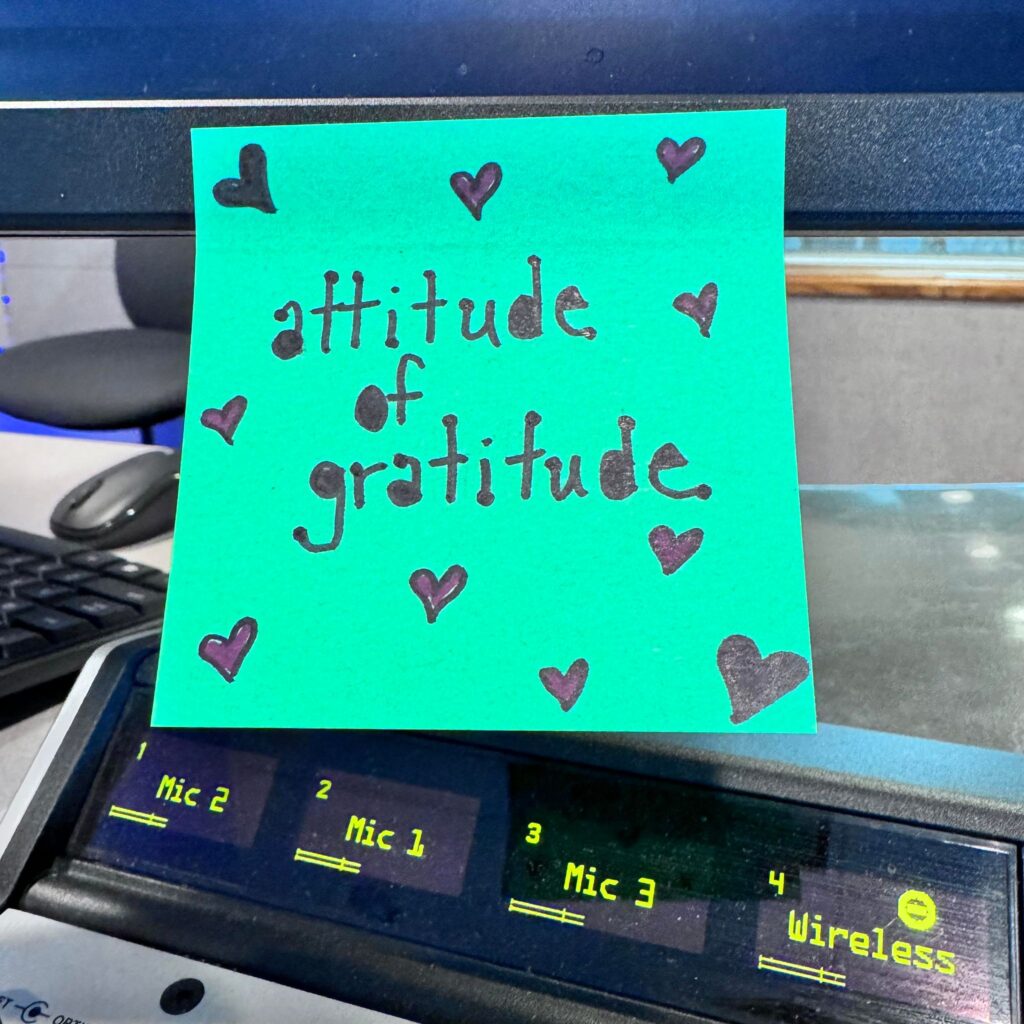 attitude
of
gratitude
1
Mic 2
2
Mic 1
3
Mic 3
4
Wireless